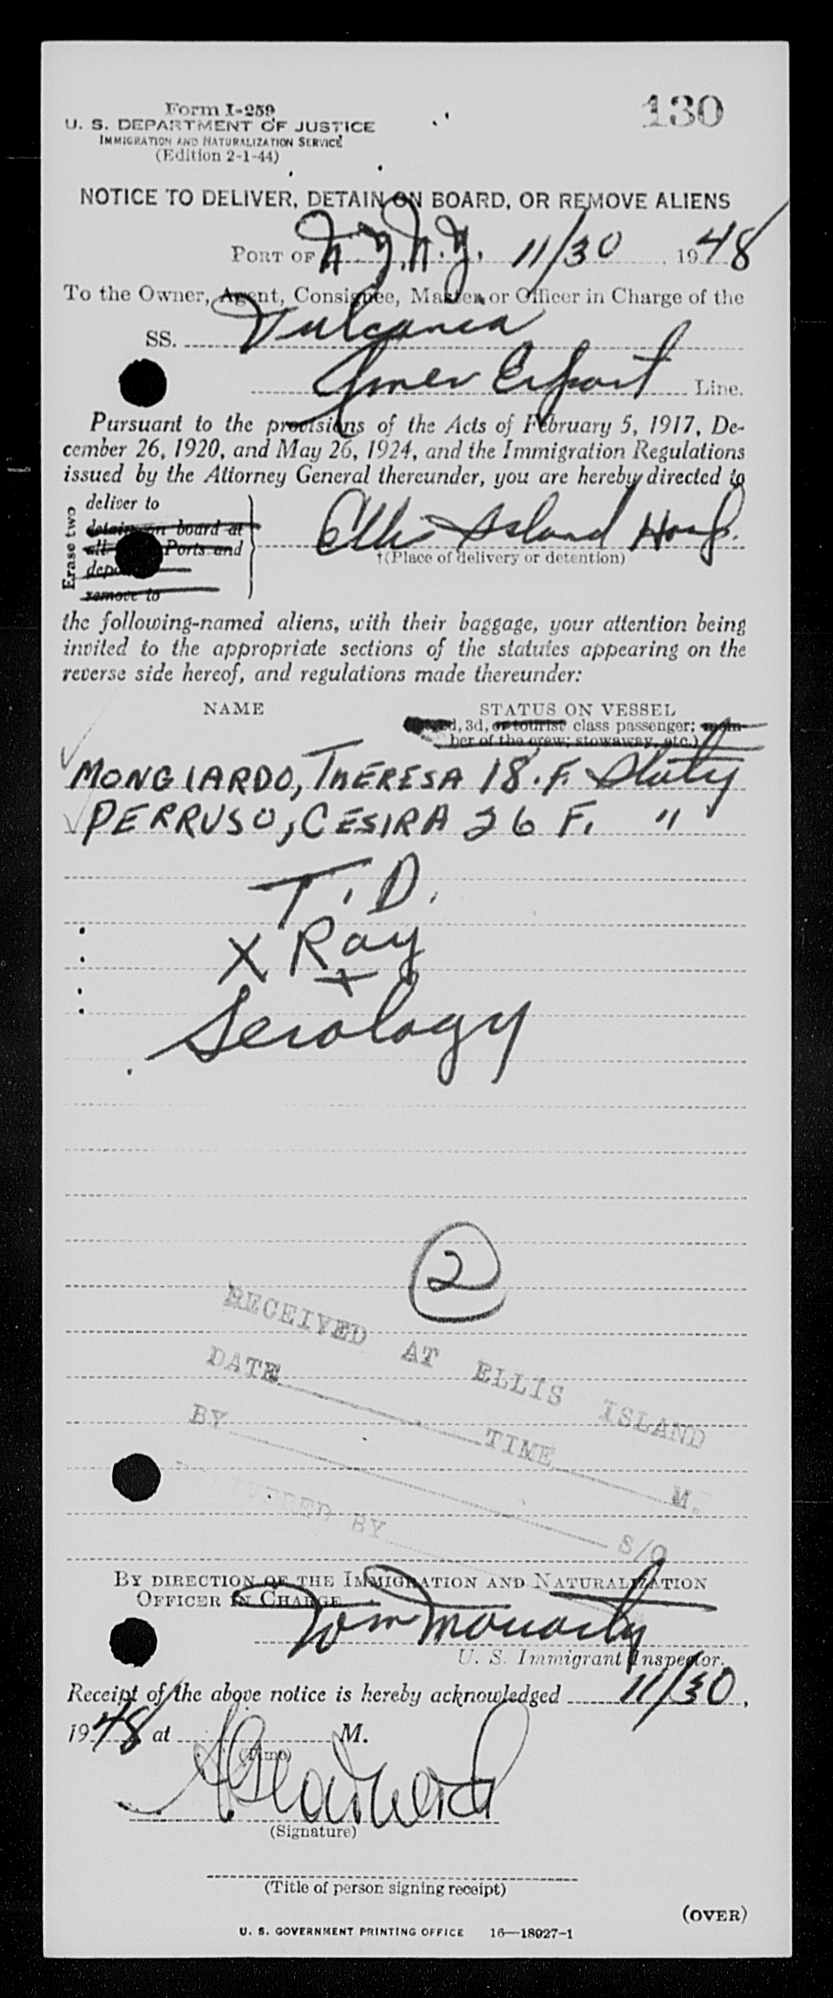 Form I-259
130
U. S. DEPARTMENT OF JUSTICE
IMMIGRATION AND NATURALIZATION SERVICE
(Edition 2-1-44)
NOTICE TO DELIVER, DETAIN ON BOARD, OR REMOVE ALIENS
PORT OF N.Y.N.Y. 11/30, 1948
To the Owner, Agent, Consignee, Master, or Officer in Charge of the
SS. Vulcania
Amer Export Line.
Pursuant to the provisions of the Acts of February 5, 1917, De-
cember 26, 1920, and May 26, 1924, and the Immigration Regulations
issued by the Attorney General thereunder, you are hereby directed to
Erase two
deliver to
detain on board at
all Ports and
remove to
Ellis Island Hosp.
†(Place of delivery or detention)
the following-named aliens, with their baggage, your attention being
invited to the appropriate sections of the statutes appearing on the
reverse side hereof, and regulations made thereunder:
NAME STATUS ON VESSEL
3d, or tourist class passenger; mem-
ber of the crew; stowaway, etc.)
MONGIARDO, THERESA 18. F.
PERRUSO, CESIRA 26 F. "
T. D.
X Ray
+
Serology
2
RECEIVED AT ELLIS ISLAND
DATE TIME M.
BY
DELIVERED BY S/O
BY DIRECTION OF THE IMMIGRATION AND NATURALIZATION
OFFICER IN CHARGE
Wm Moriarty
U. S. Immigrant Inspector.
Receipt of the above notice is hereby acknowledged 11/30,
1948 at M.
(Time)
(Signature)
(Title of person signing receipt)
(OVER)
U. S. GOVERNMENT PRINTING OFFICE 16—18027-1